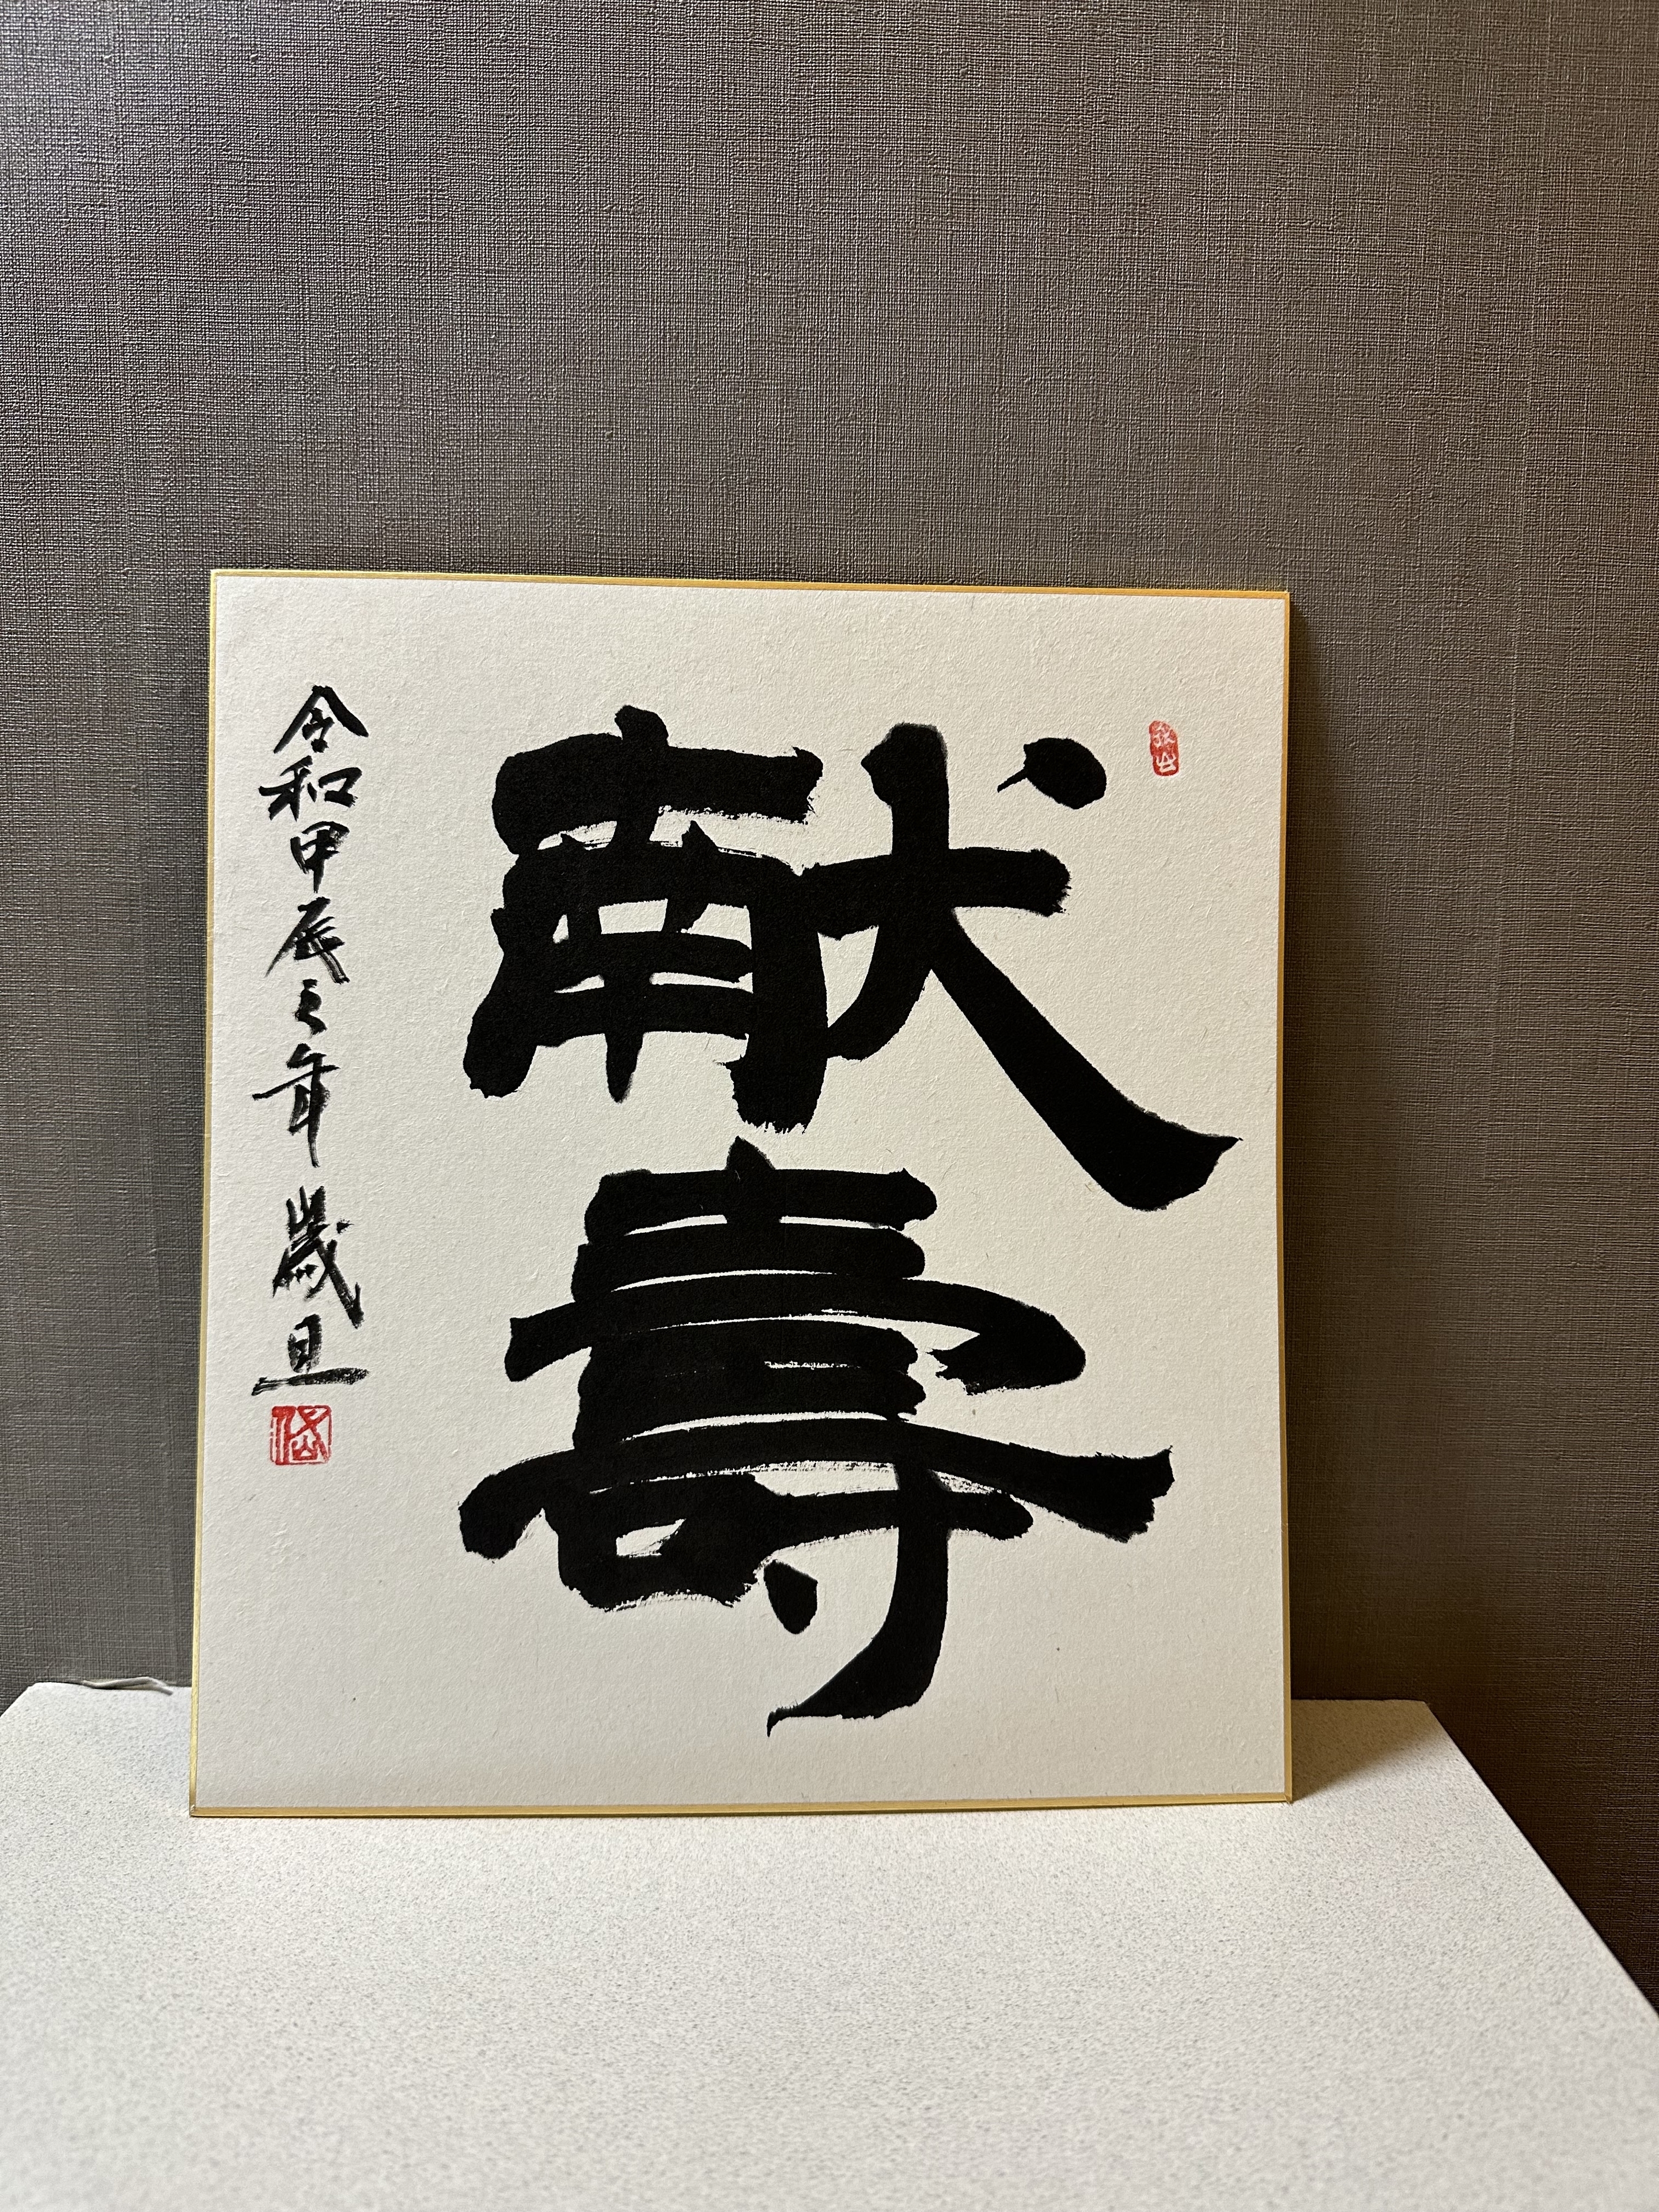 献壽
令和甲辰之年 歳旦